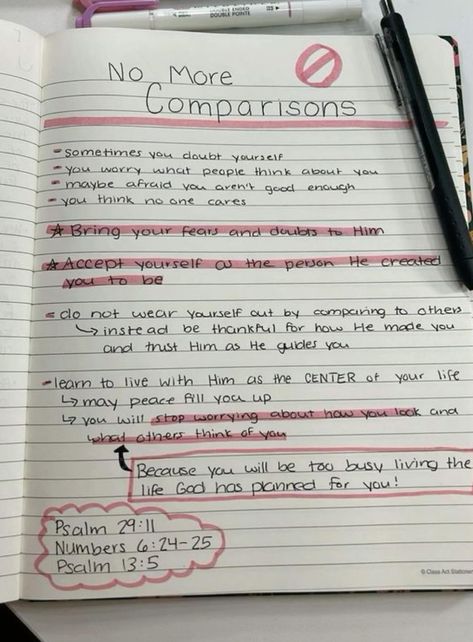 DOUBLE ENDED
DOUBLE POINTE
No More
Comparisons
- sometimes you doubt yourself
- you worry what people think about you
- maybe afraid you aren't good enough
- you think no one cares
☆ Bring your fears and doubts to Him
☆ Accept yourself as the person He created
you to be
- do not wear yourself out by comparing to others
↳ instead be thankful for how He made you
and trust Him as He guides you
- learn to live with Him as the CENTER of your life
↳ may peace fill you up
↳ you will stop worrying about how you look and
what others think of you
Because you will be too busy living the
life God has planned for you!
Psalm 29:11
Numbers 6:24-25
Psalm 13:5
© Class Act Stationery